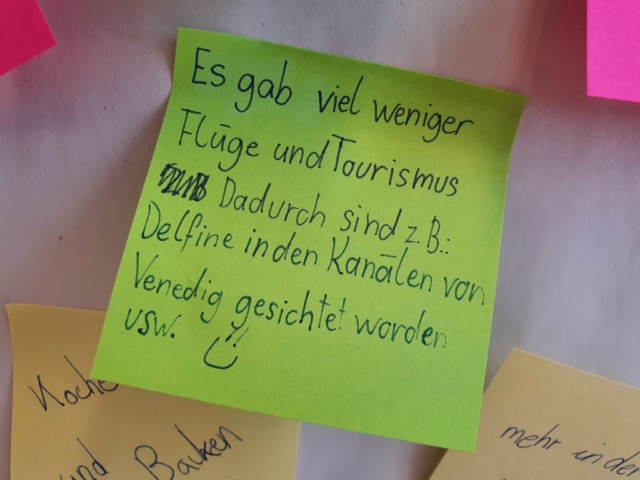 Es gab viel weniger
Flüge und Tourismus
Dadurch sind z.B.:
Delfine in den Kanälen von
Venedig gesichtet worden
usw.
und Backen
mehr in der